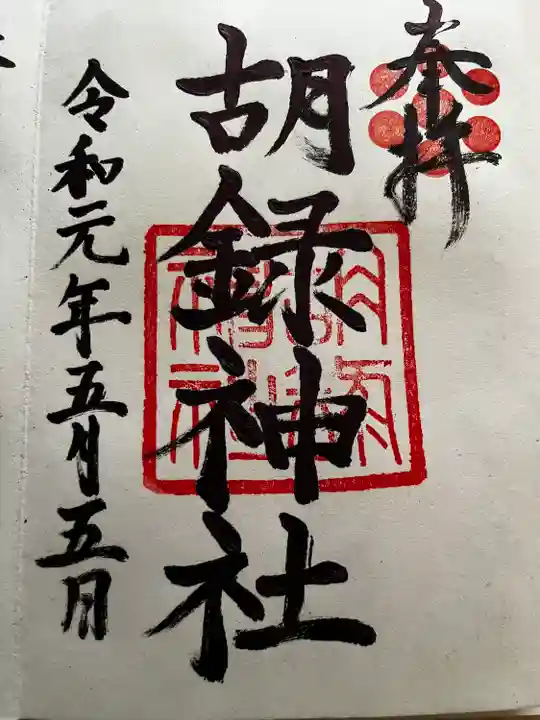 奉拝
胡録神社
令和元年五月五月